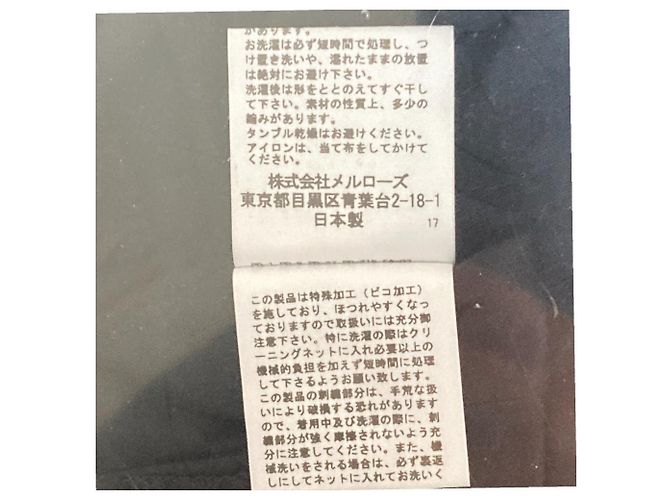 があります。
お洗濯は必ず短時間で処理し、つ
け置き洗いや、濡れたままの放置
は絶対にお避け下さい。
洗濯後は形をととのえてすぐ干し
て下さい。素材の性質上、多少の
縮みがあります。
タンブル乾燥はお避けください。
アイロンは、当て布をしてかけて
ください。
株式会社メルローズ
東京都目黒区青葉台2-18-1
日本製
17
この製品は特殊加工(ピコ加工)
を施しており、ほつれやすくなっ
ておりますので取扱いには充分御
注意下さい。特に洗濯の際はクリ
ーニングネットに入れ必要以上の
機械的負担を加えず短時間に処理
して下さるようお願い致します。
この製品の刺繍部分は、手荒な扱
いにより破損する恐れがあります
ので、着用中及び洗濯の際に、刺
繍部分が強く摩擦されないよう充
分に注意してください。また、機
械洗いをされる場合は、必ず裏返
しにしてネットに入れてお洗いく